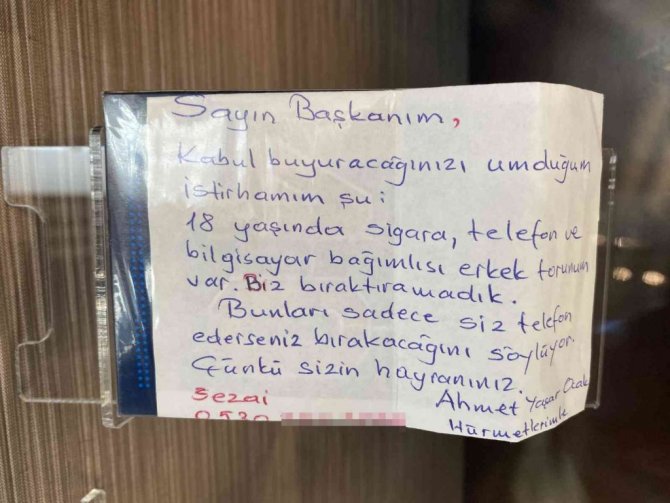 Sayın Başkanım,
Kabul buyuracağınızı umduğum
istirhamım şu:
18 yaşında sigara, telefon ve
bilgisayar bağımlısı erkek torunum
var. Biz bıraktıramadık.
Bunları sadece siz telefon
ederseniz bırakacağını söylüyor.
Çünkü sizin hayranınız.
Ahmet Yaşar Ocak
Hürmetlerimle
Sezai
0530